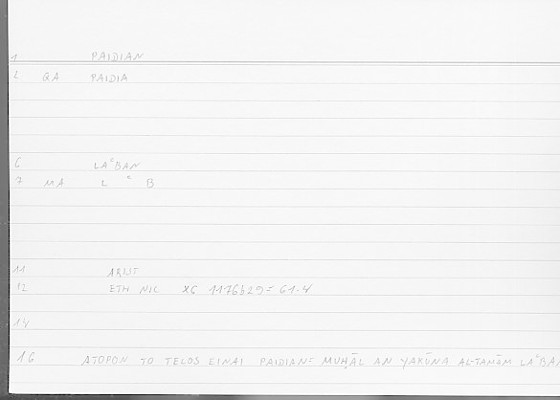 1 PAIDIAN
2 QA PAIDIA
6 LAʿBAN
7 MA L ʿ B
11 ARIST
12 ETH NIC X6 1176b29= 61.4
14
16 ATOPON TO TELOS EINAI PAIDIAN= MUḤĀL AN YAKŪNA AL-TAMĀM LAʿBAN